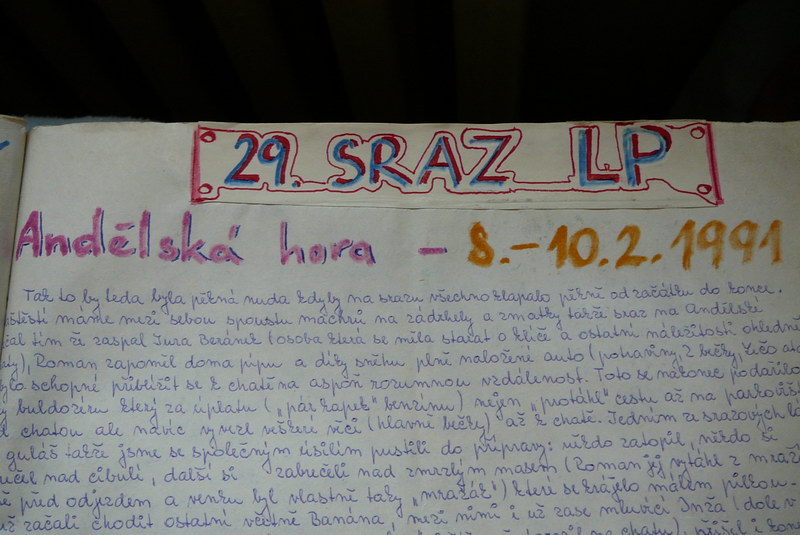 29. SRAZ LP
Andělská hora - 8.-10.2.1991
Tak to by teda byla pěkná nuda kdyby na srazu všechno klapalo pěkně od začátku do konce.
štěstí máme mezi sebou spoustu machrů na zádrhely a zmatky takže sraz na Andělské
čal tím že zaspal Jura Beránek (osoba která se měla starat o klíče a ostatní náležitosti ohledně
ty), Roman zapomněl doma pípu a díky sněhu plně naložené auto (potraviny, 2 bečky,
bylo schopné přiblížit se k chatě na aspoň rozumnou vzdálenost. Toto se nakonec podařilo
buldozéru který za úplatu ("pár kapek" benzínu) nejen "protáhl" cestu až na parkoviš
d chatou ale navíc vyvezl veškeré věci (hlavně bečky) až k chatě. Jedním ze srazových
guláš takže jsme se společným úsilím pustili do přípravy: někdo zatopil, někdo si
učel nad cibulí, další si zabučeli nad zmrzlým masem (Roman jej vytáhl z mraz
ě před odjezdem a venku byl vlastně taky "mrazák") které se krájelo málem pilkou.
už začali chodit ostatní včetně Banána, mezi nimi i už zase mluvící (dole v
na chatu), přišel i